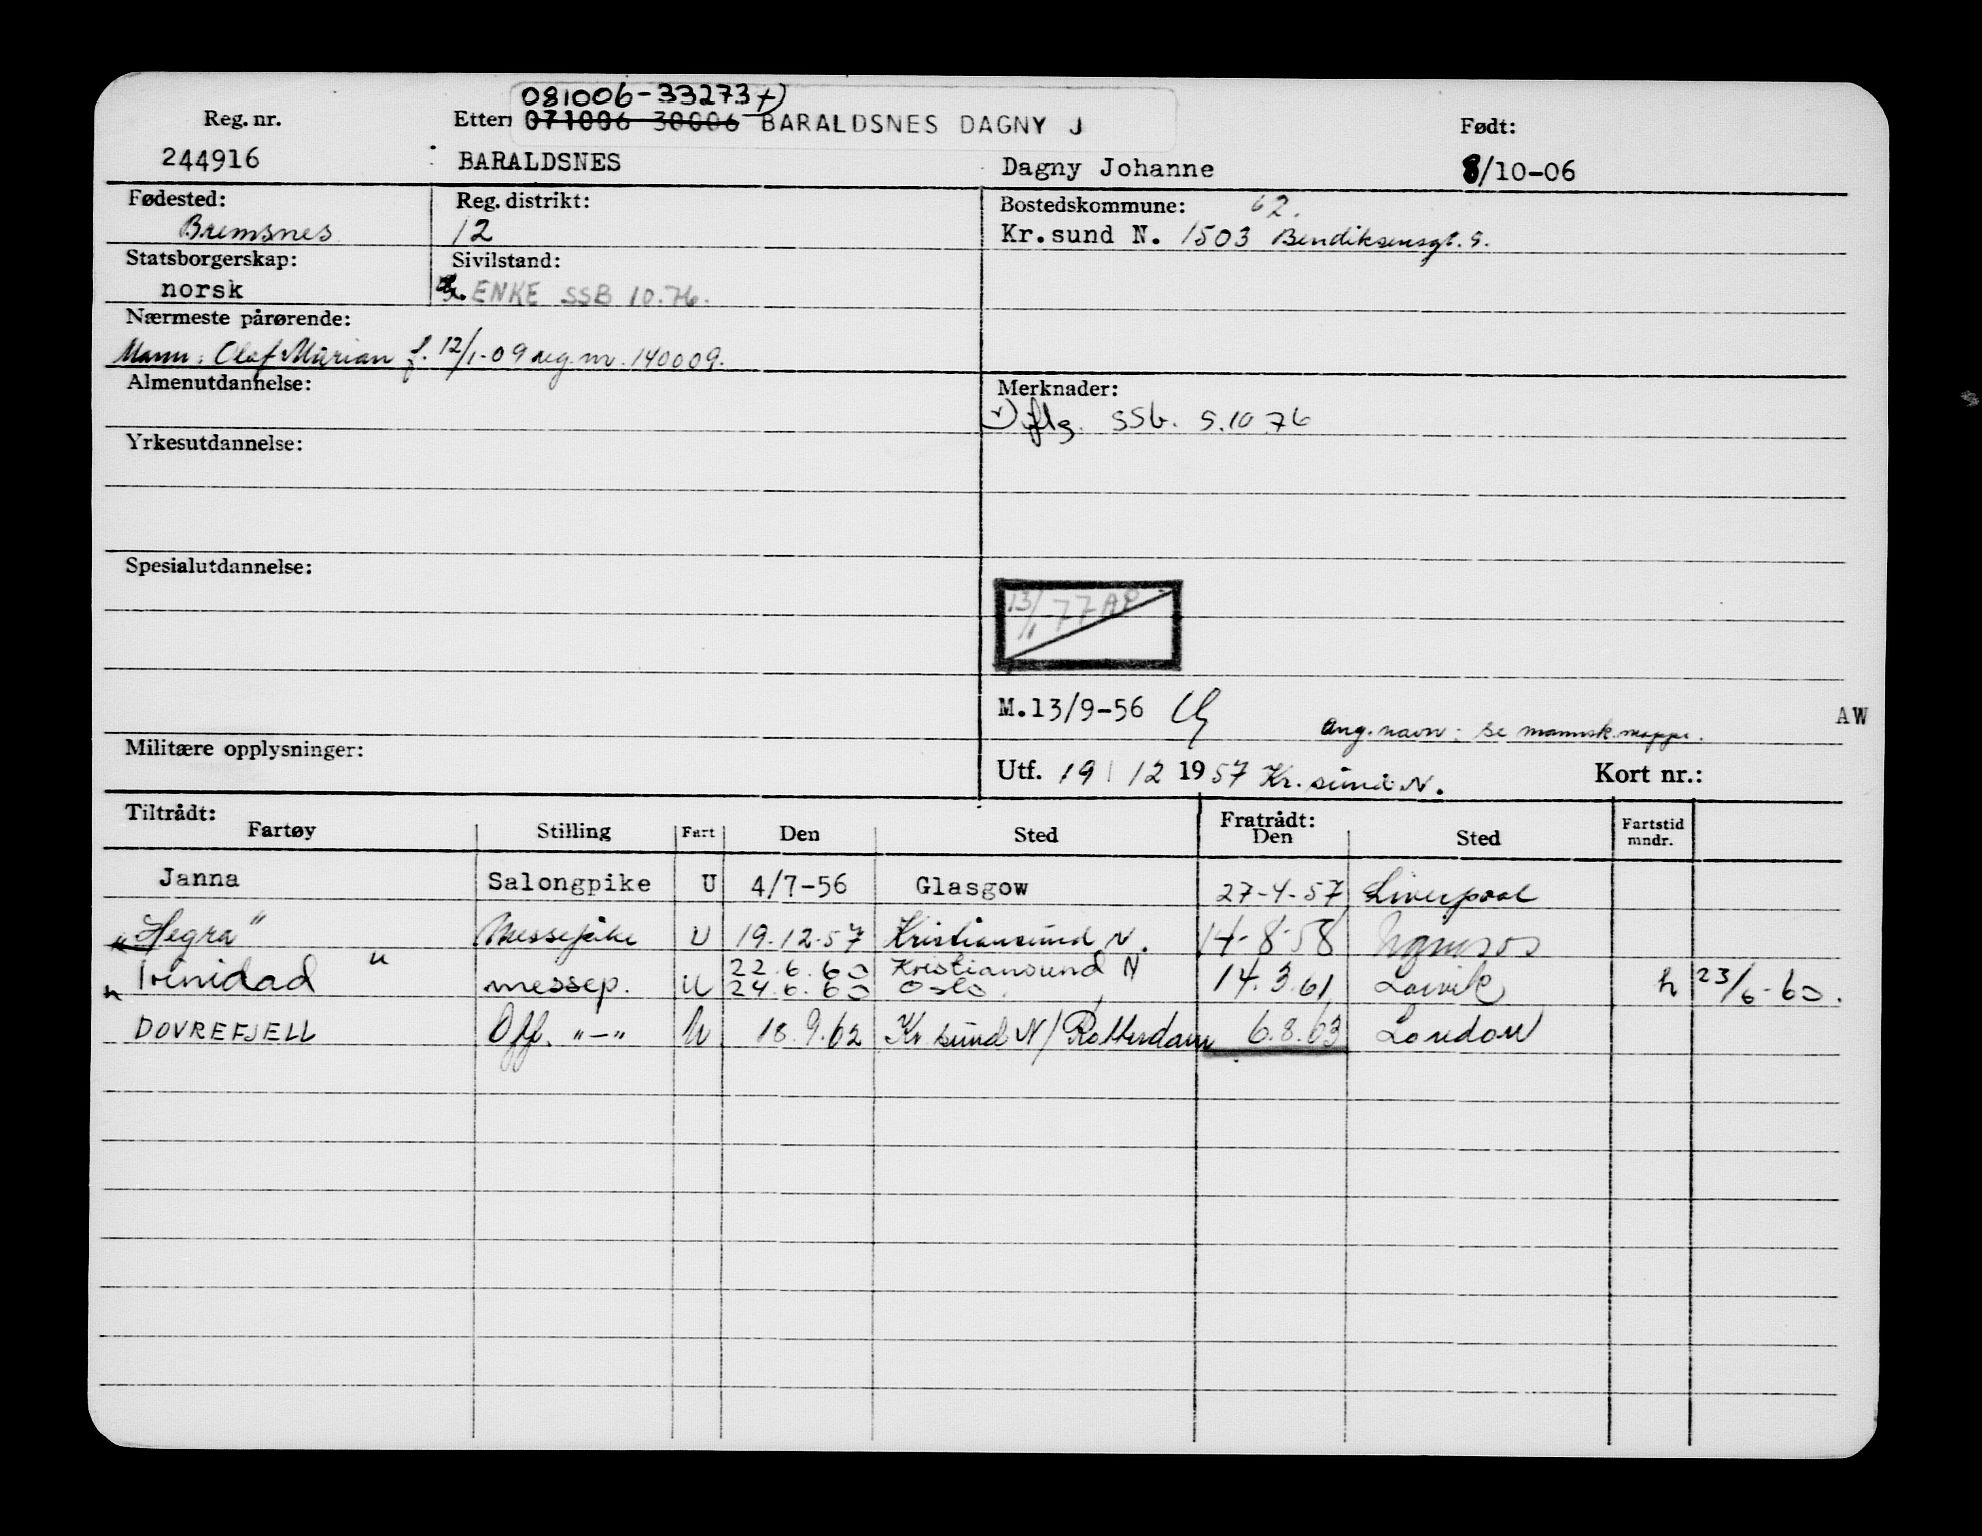 081006-33273 +)
Reg. nr. Ettern 071006 30006 BARALDSNES DAGNY J Født:
244916 BARALDSNES Dagny Johanne 8/10-06
Fødested: Reg. distrikt: Bostedskommune: 62.
Bremsnes 12 Kr.sund N. 1503 Bendiksensgt. 9.
Statsborgerskap: Sivilstand:
norsk ENKE SSB 10.76.
Nærmeste pårørende:
Mann: Olaf Marian f. 12/1-09 reg. nr. 140009.
Almenutdannelse: Merknader:
+) iflg. SSb. 5.10 76
Yrkesutdannelse:
Spesialutdannelse:
13/1-77 AP
M.13/9-56 AW
Ang. navn: se mannsk.mappe.
Militære opplysninger:
Utf. 19/12 1957 Kr. sund N. Kort nr.:
Tiltrådt: Fratrådt:
Fartøy Stilling Fart Den Sted Den Sted Fartstid mndr.
Janna Salongpike U 4/7-56 Glasgow 27-4-57 Liverpool
"Hegra" Messepike U 19.12-57 Kristiansund N. 14-8-58 Namsos
22.6.60 Kristiansund N
"Trinidad" messep. U 24.6.60 Oslo 14.3.61 Larvik h 23/6-60.
DOVREFJELL Off. "-" U 18.9.62 Kr.sund N/Rotterdam 6.8.63 London